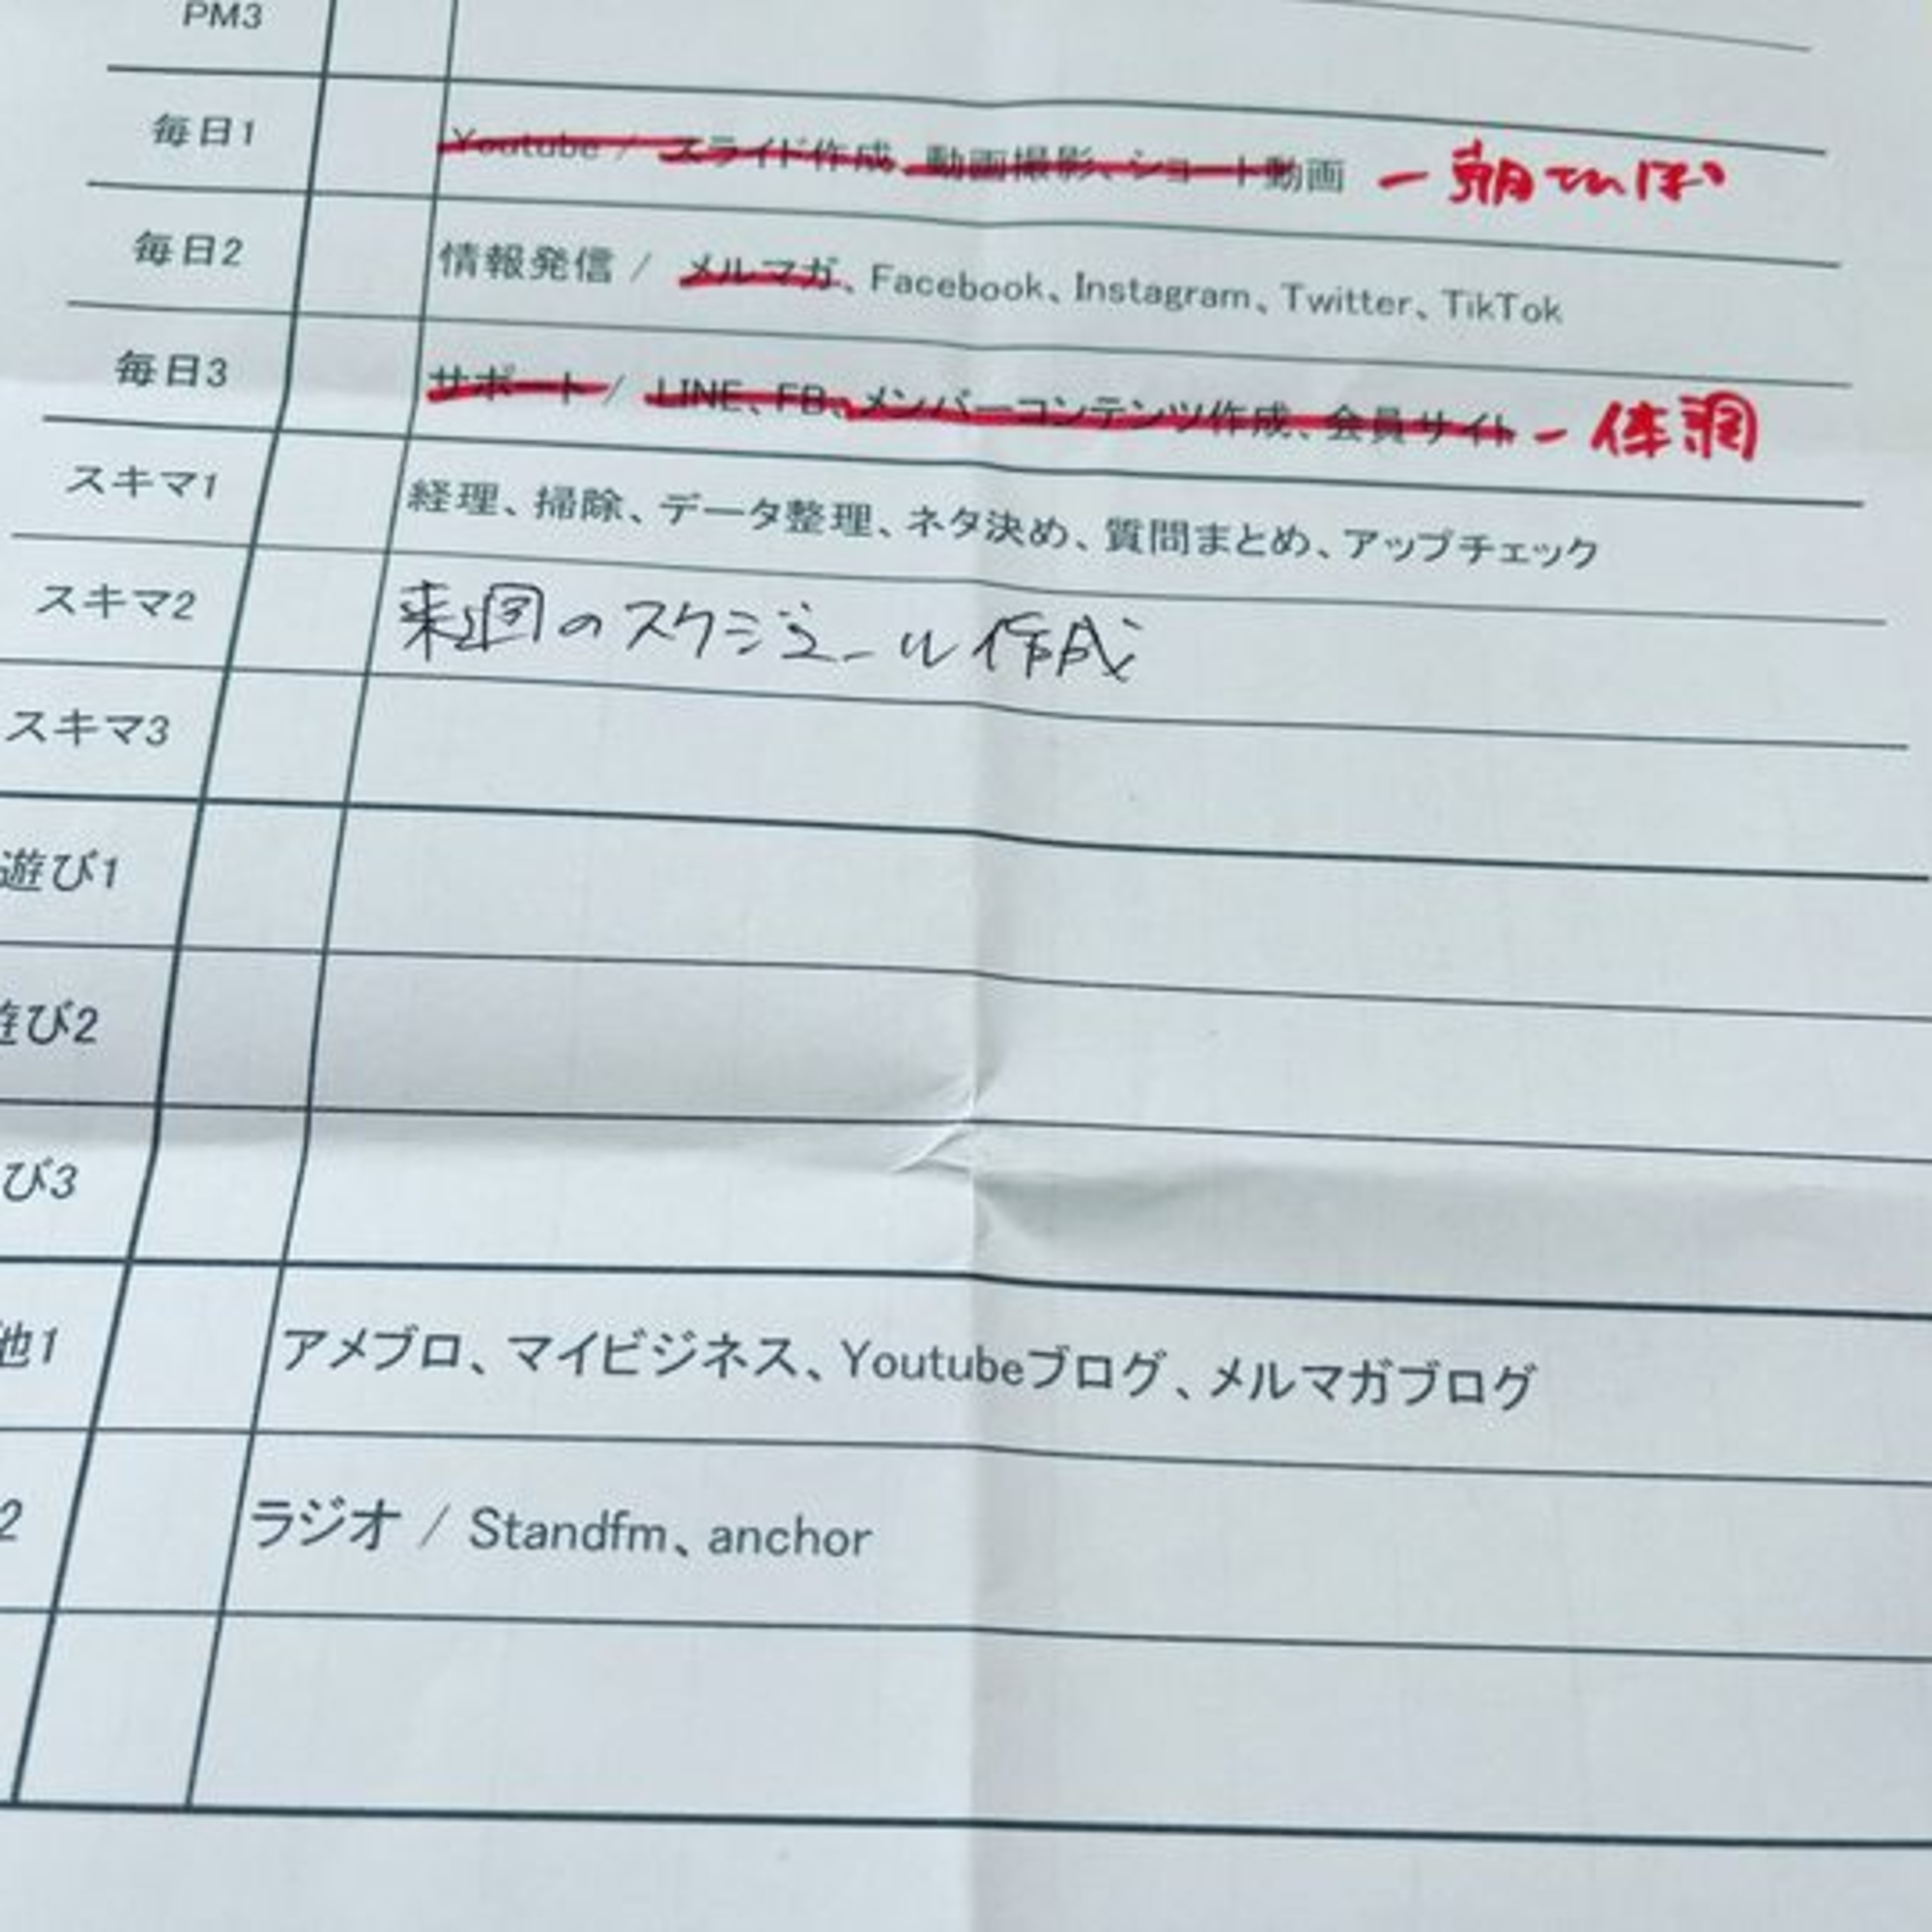 PM3
毎日1 Youtube / スライド作成、動画撮影、ショート動画 ー朝さんぽ
毎日2 情報発信 / メルマガ、Facebook、Instagram、Twitter、TikTok
毎日3 サポート / LINE、FB、メンバーコンテンツ作成、会員サイト ー体調
スキマ1 経理、掃除、データ整理、ネタ決め、質問まとめ、アップチェック
スキマ2 来週のスケジュール作成
スキマ3
遊び1
遊び2
び3
他1 アメブロ、マイビジネス、Youtubeブログ、メルマガブログ
2 ラジオ / Standfm、anchor